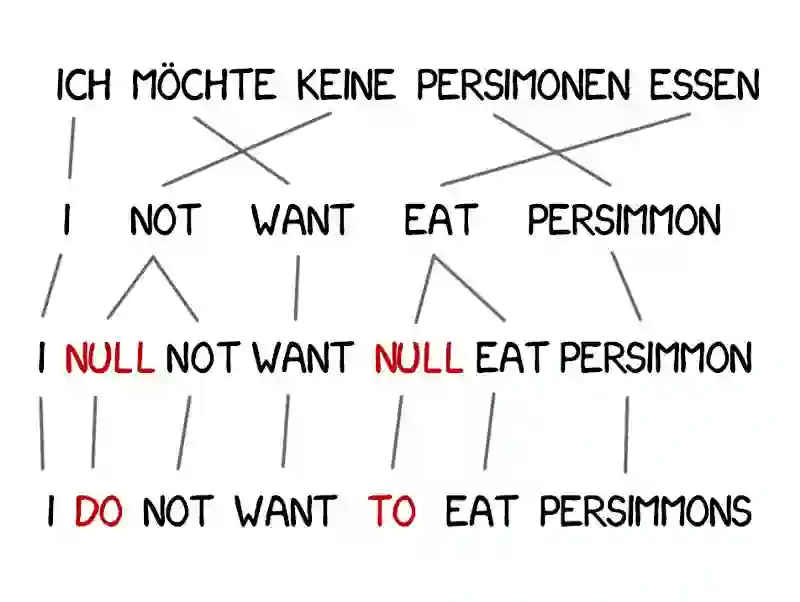 ICH MÖCHTE KEINE PERSIMONEN ESSEN
I NOT WANT EAT PERSIMMON
I NULL NOT WANT NULL EAT PERSIMMON
I DO NOT WANT TO EAT PERSIMMONS